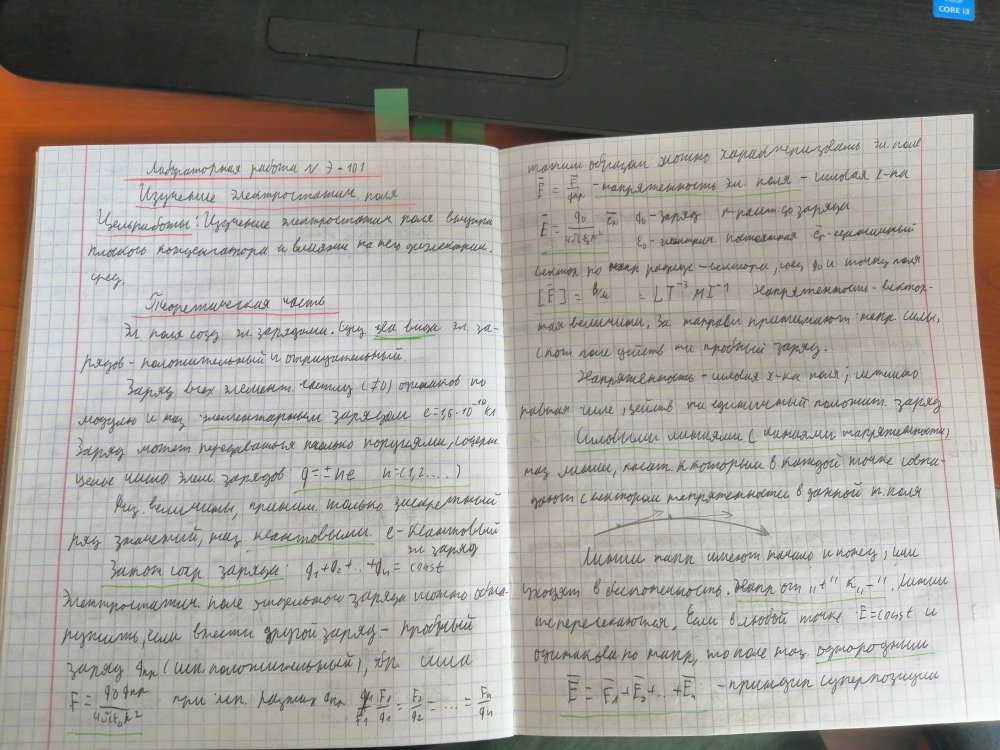 CORE i3
Лабораторная работа № Э-101
Изучение электростатич поля
Цель работы: Изучение электростатич поля внутри
плоского конденсатора и влияти на него диэлектрич.
сред.
Теоретическая часть
Эл поля созд эл. зарядами. Сущ два вида эл. за-
рядов - положительный и отрицательный
Заряд всех элемент. частиц (≠0) одинаков по
модулю и наз элементарным зарядом e=1,6·10⁻¹⁹ Кл
Заряд может передаваться только порциями, содерж
целое число элем зарядов q=±ne n=(1,2....)
Физ. величины, приним. только дискретный
ряд значений, наз квантовыми. e - квантовый
эл заряд
Закон сохр. заряда: q₁+q₂+..+qₙ = const
Электростатич. поле отдельного заряда можно обна-
ружить, если внести другой заряд - пробный
заряд qпр (исп. положительный), обр. сила
F = q₀qпр/4πε₀r² при исп. разных qпр F₁/q₁ = F₂/q₂ = ... = Fₙ/qₙ
таким образом можно характеризовать эл. поле
E̅ = F̅/qпр - напряженность эл. поля - силовая х-ка
E̅ = q₀/4πε₀r² e̅ᵣ q₀ - заряд r - расст до заряда
ε₀ - электрич. постоянная e̅ᵣ - единичный
вектор по напр радиус - вектора, соед q₀ и точку поля
[E̅] = В/м = LT⁻³MI⁻¹ Напряженность - вектор-
ная величина. За направл принимают напр силы,
с кот поле действ на пробный заряд.
Напряженность - силовая х-ка поля; численно
равная силе, действ на единичный положит. заряд
Силовыми линиями (линиями напряженности)
наз линии, касат. к которым в каждой точке совпа-
дают с вектором напряженности в данной т. поля
Линии напр имеют начало и конец, или
уходят в бесконечность. Напр от „+" к „-". Линии
не пересекаются. Если в любой точке E=const и
одинакова по напр, то поле наз однородным
E̅ = E̅₁ + E̅₂ + .. + E̅ₙ - принцип суперпозиции